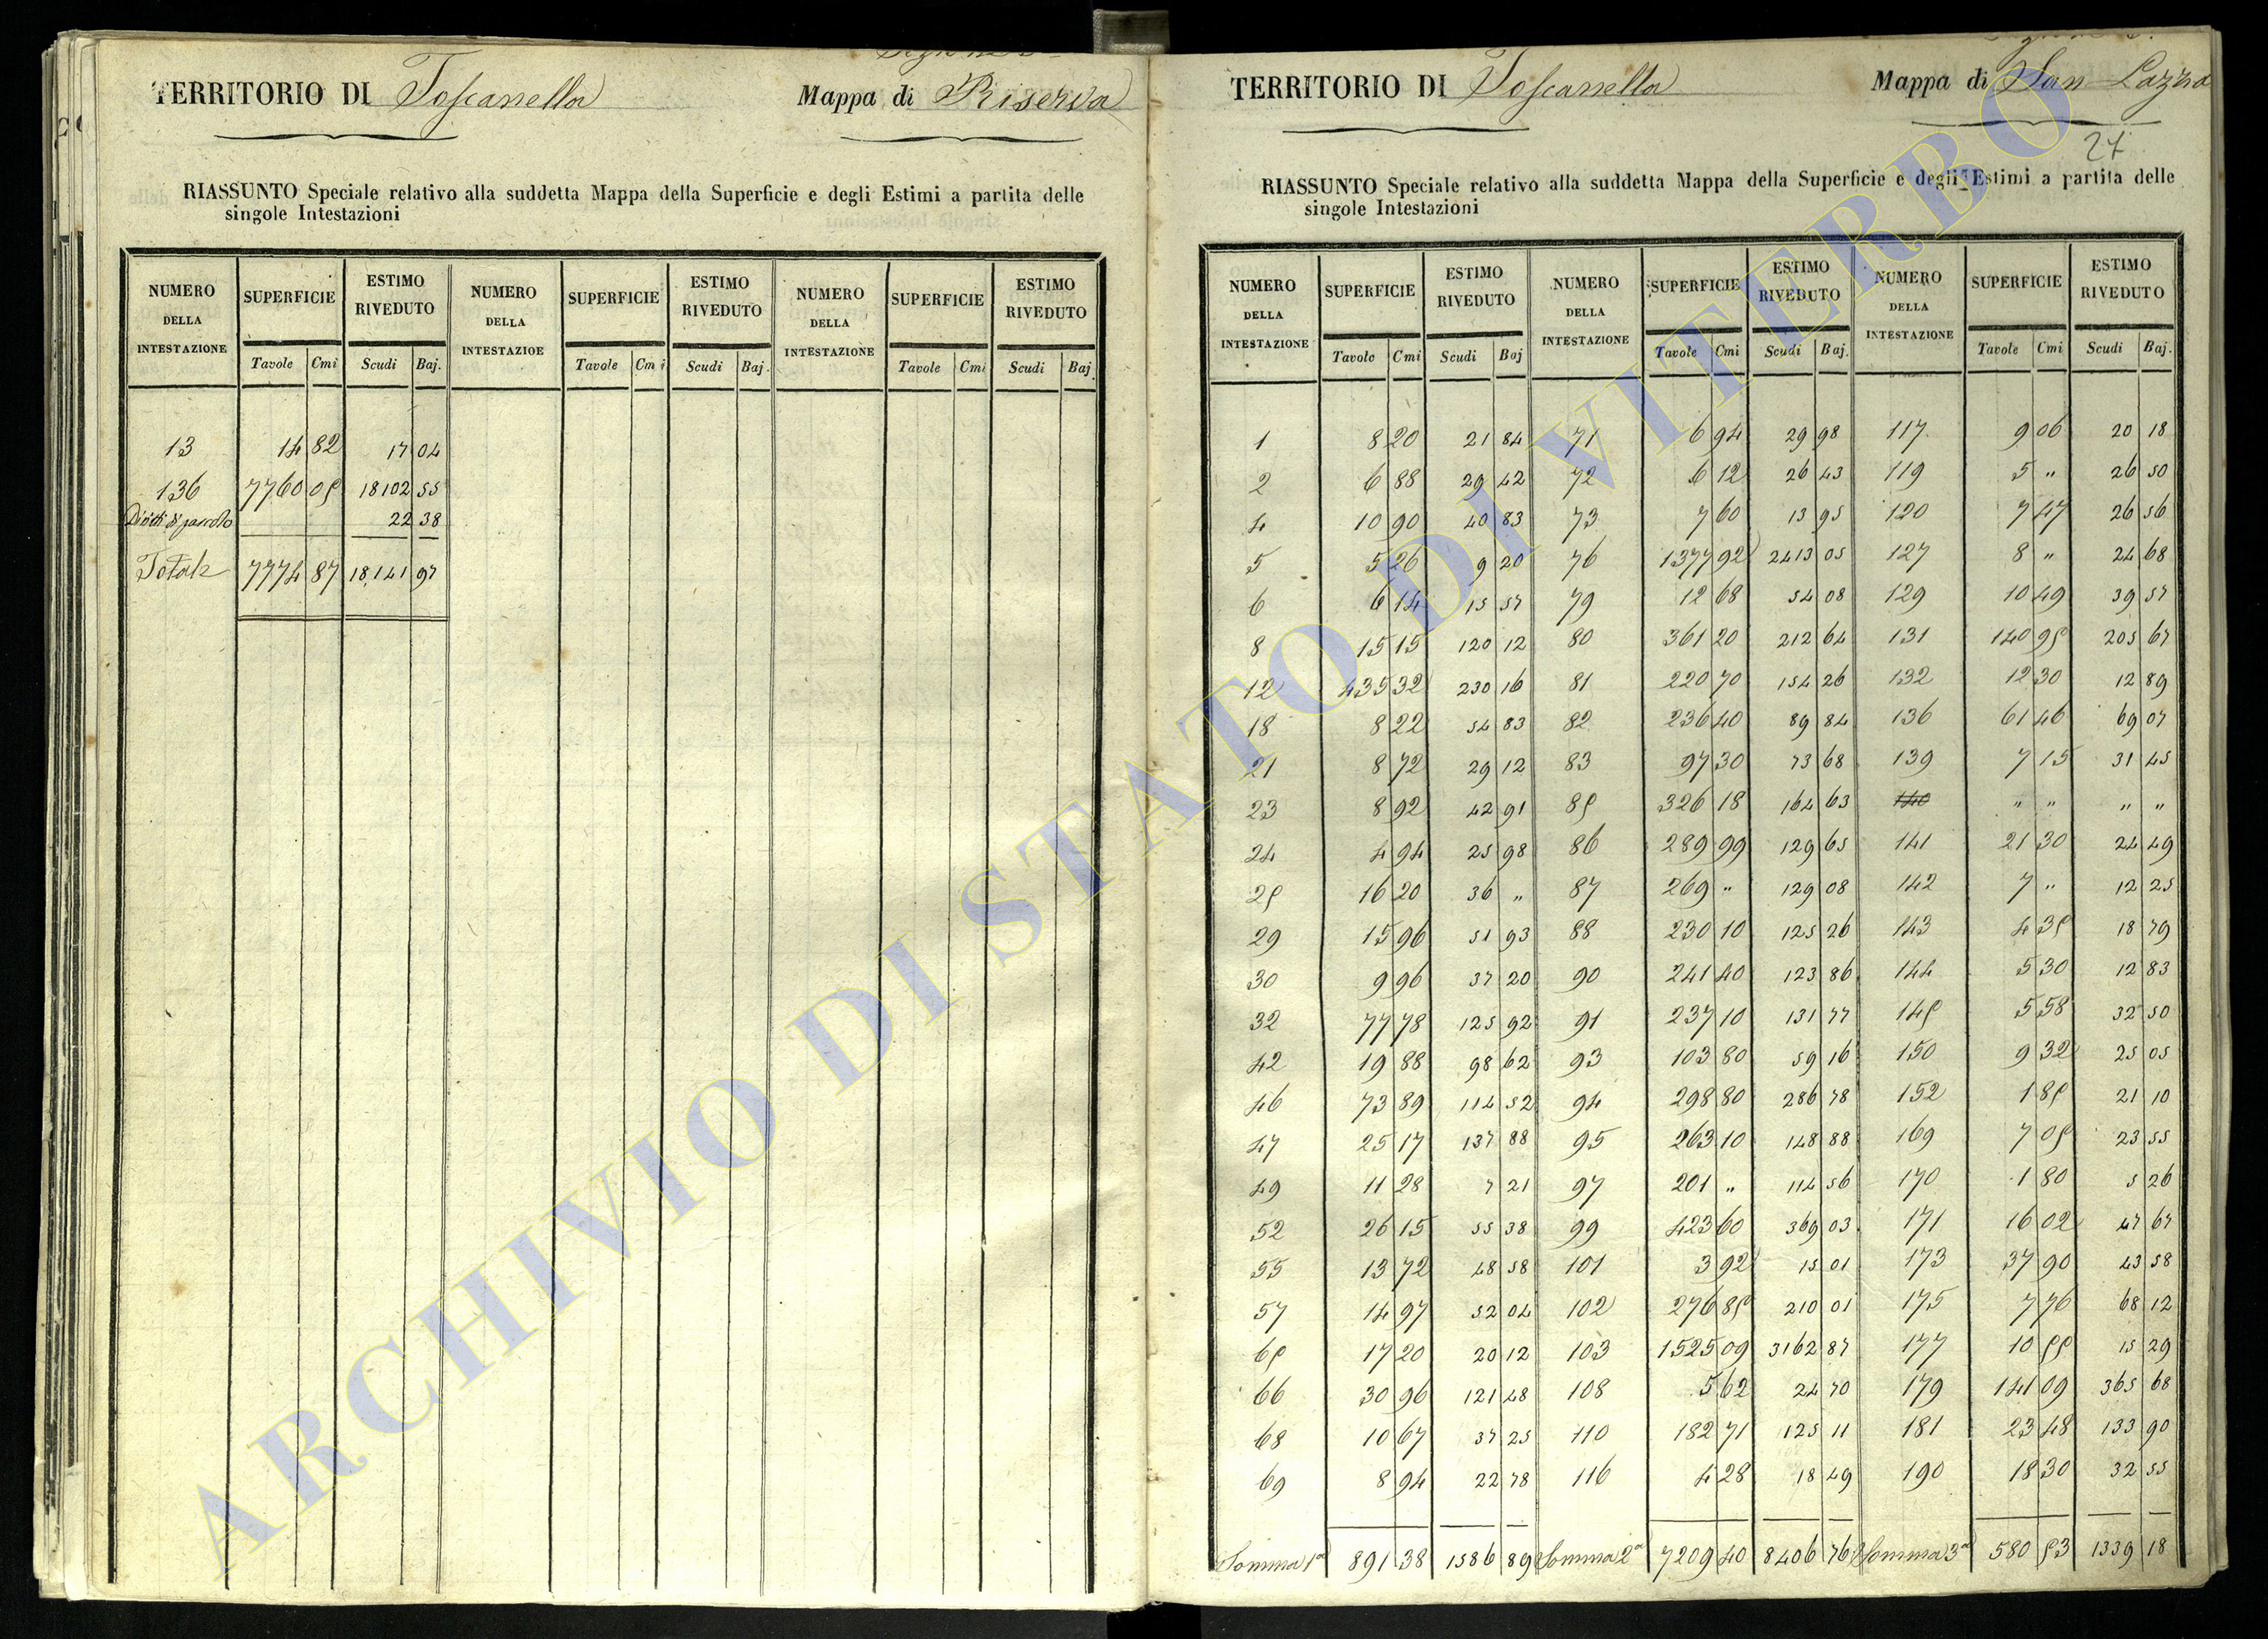 TERRITORIO DI Toscanella Mappa di Riserva
RIASSUNTO Speciale relativo alla suddetta Mappa della Superficie e degli Estimi a partita delle
singole Intestazioni
NUMERO DELLA INTESTAZIONE SUPERFICIE ESTIMO RIVEDUTO NUMERO DELLA INTESTAZIOE SUPERFICIE ESTIMO RIVEDUTO NUMERO DELLA INTESTAZIONE SUPERFICIE ESTIMO RIVEDUTO
Tavole Cmi Scudi Baj. Tavole Cmi Scudi Baj. Tavole Cmi Scudi Baj.
13 14 82 17 04
136 7760 05 18102 55
Diritti di pascolo 22 38
Totale 7774 87 18,141 97
TERRITORIO DI Toscanella Mappa di San Lazzro
27
RIASSUNTO Speciale relativo alla suddetta Mappa della Superficie e degli Estimi a partita delle
singole Intestazioni
NUMERO DELLA INTESTAZIONE SUPERFICIE ESTIMO RIVEDUTO NUMERO DELLA INTESTAZIONE SUPERFICIE ESTIMO RIVEDUTO NUMERO DELLA INTESTAZIONE SUPERFICIE ESTIMO RIVEDUTO
Tavole Cmi Scudi Baj Tavole Cmi Scudi Baj. Tavole Cmi Scudi Baj.
1 8 20 21 84 71 6 94 29 98 117 9 06 20 18
2 6 88 29 42 72 6 12 26 43 119 5 " 26 50
4 10 90 40 83 73 7 60 13 95 120 7 47 26 56
5 5 26 9 20 76 1377 92 2413 05 127 8 " 24 68
6 6 14 15 57 79 12 68 54 08 129 10 49 39 57
8 15 15 120 12 80 361 20 212 64 131 140 95 205 67
12 435 32 230 16 81 220 70 154 26 132 12 30 12 89
18 8 22 54 83 82 236 40 89 84 136 61 46 69 07
21 8 72 29 12 83 97 30 73 68 139 7 15 31 45
23 8 92 42 91 85 326 18 164 63 140 " " " "
24 4 94 25 98 86 289 99 129 65 141 21 30 24 49
25 16 20 36 " 87 269 " 129 08 142 7 " 12 25
29 15 96 51 93 88 230 10 125 26 143 4 35 18 79
30 9 96 37 20 90 241 40 123 86 144 5 30 12 83
32 77 78 125 92 91 237 10 131 77 145 5 58 32 50
42 19 88 98 62 93 103 80 59 16 150 9 32 25 05
46 73 89 114 52 94 298 80 286 78 152 1 85 21 10
47 25 17 137 88 95 263 10 148 88 169 7 05 23 55
49 11 28 7 21 97 201 " 114 56 170 1 80 5 26
52 26 15 55 38 99 423 60 369 03 171 16 02 47 67
55 13 72 48 58 101 3 92 15 01 173 37 90 43 58
57 14 97 52 04 102 276 85 210 01 175 7 76 68 12
65 17 20 20 12 103 1525 09 3162 87 177 10 55 15 29
66 30 96 121 48 108 5 62 24 70 179 141 09 365 68
68 10 67 37 25 110 182 71 125 11 181 23 48 133 90
69 8 94 22 78 116 4 28 18 49 190 18 30 32 55
Somma 1a 891 38 1586 89 Somma 2a 7209 40 8406 76 Somma 3a 580 53 1339 18
ARCHIVIO DI STATO DI VITERBO